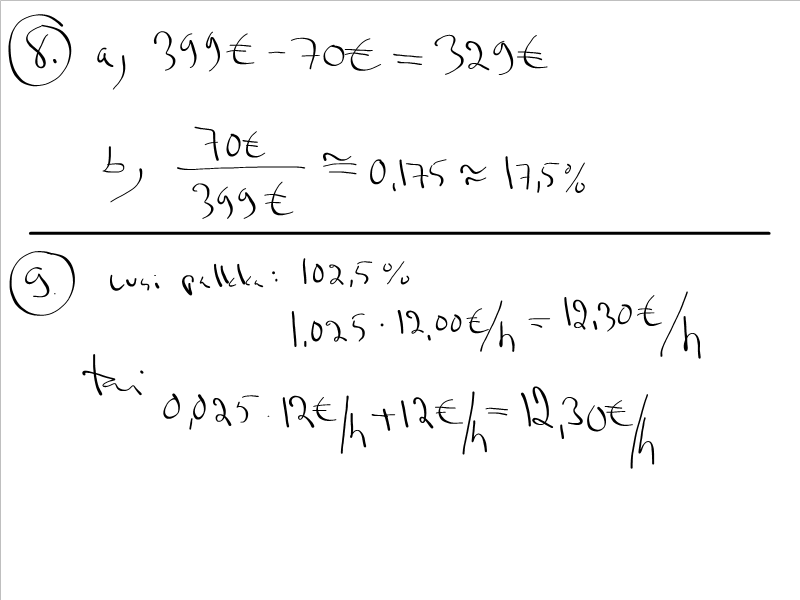 8. a) 399€ - 70€ = 329€
b) 70€ / 399€ ≈ 0,175 ≈ 17,5%
9. uusi palkka: 102,5%
1,025 · 12,00€/h = 12,30€/h
tai
0,025 · 12€/h + 12€/h = 12,30€/h